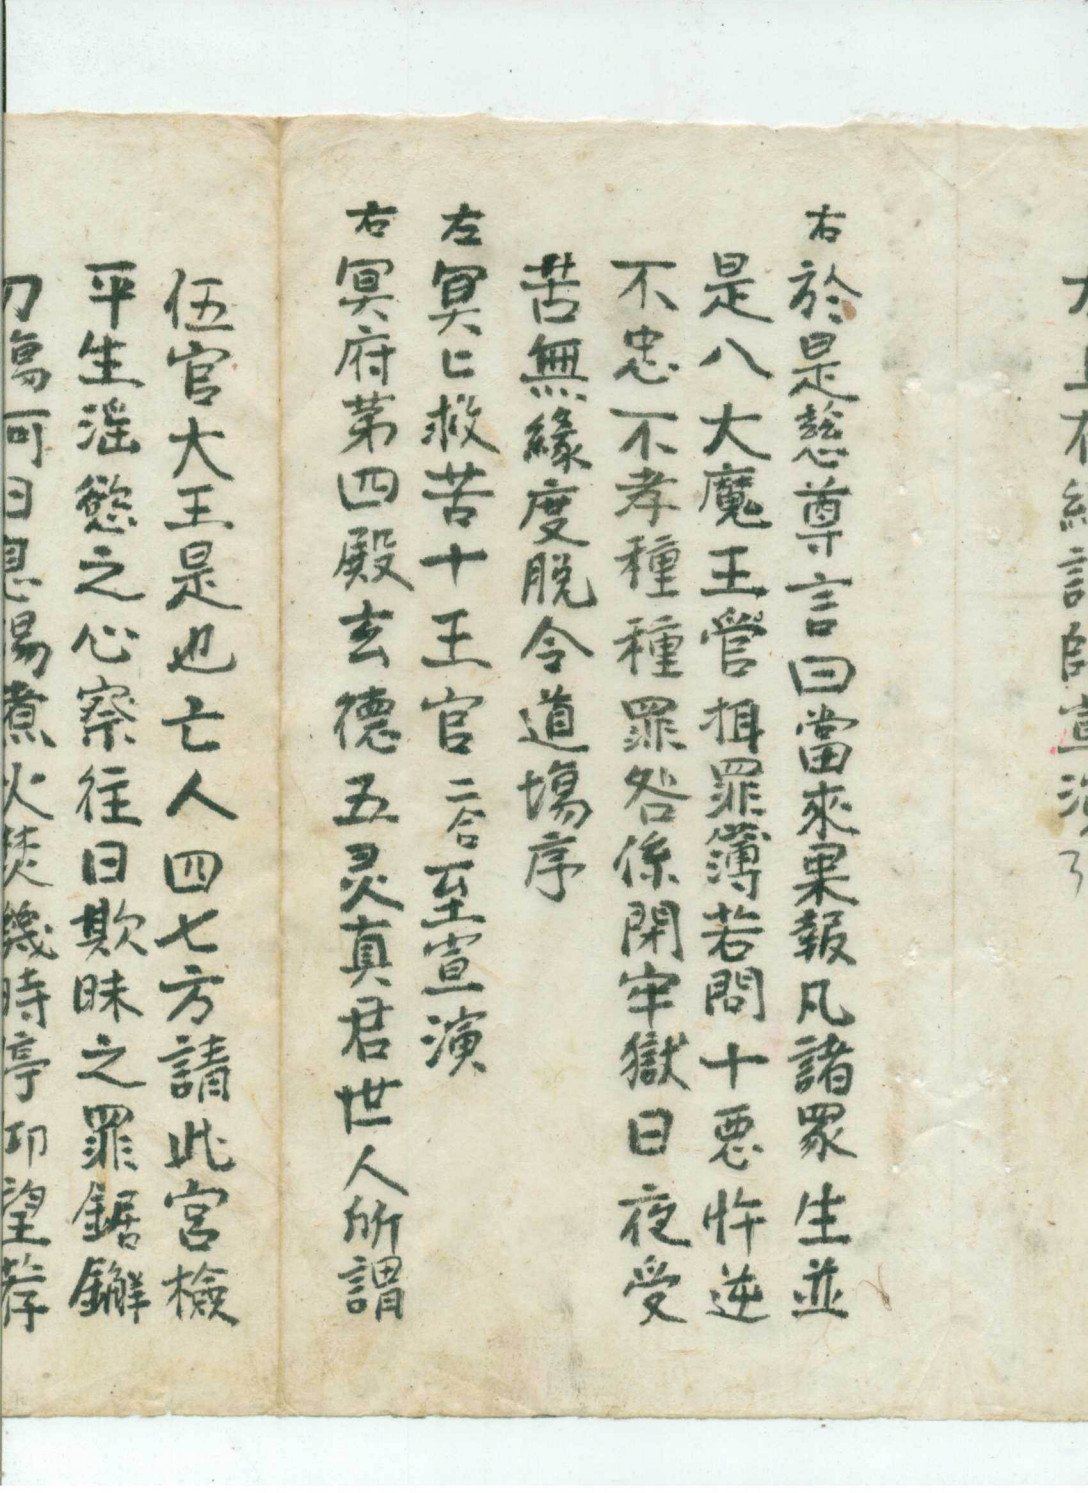 右於是慈尊言曰當來果報凡諸眾生並
是八大魔王管捐罪簿若問十悪忤逆
不忠不孝種種罪咎係閉牢獄日夜受
苦無緣度脱令道場序
左冥匕救苦十王官二合至宣演
右冥府第四殿玄德五灵真君世人所謂
伍官大王是也亡人四七方請此宮檢
平生滛慾之心察往日欺昧之罪鋸鑼
刀傷何日息湯煮火焚幾時停仰望荐